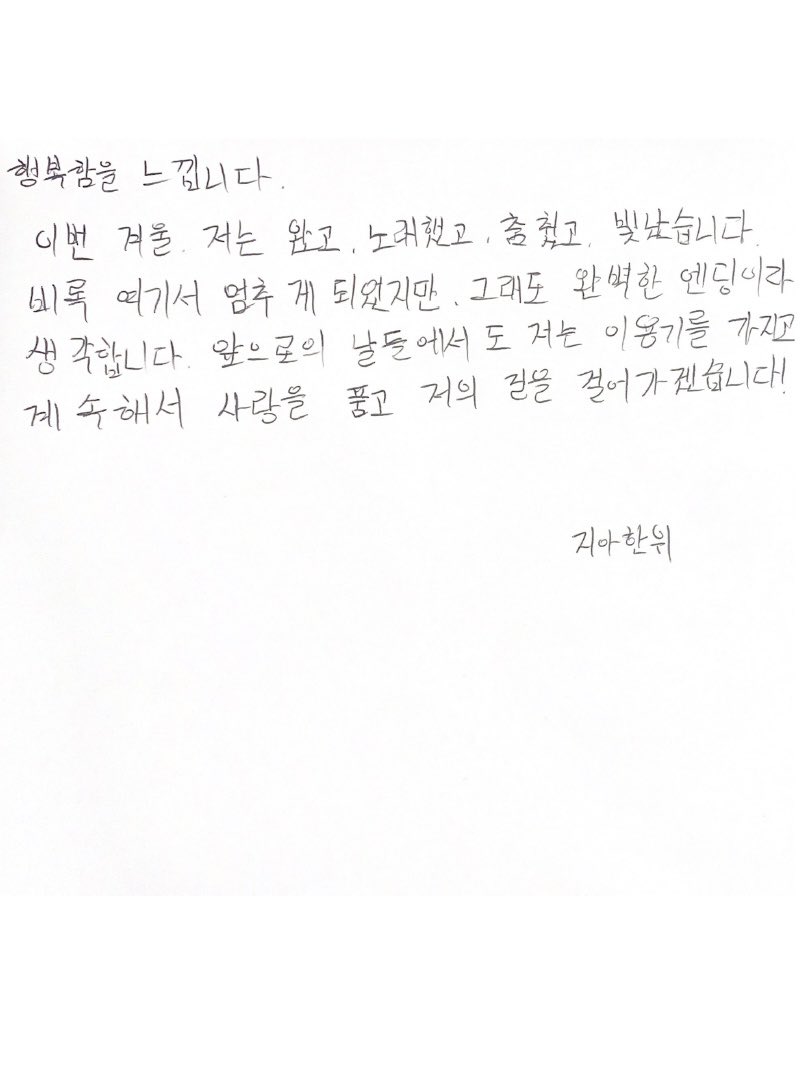 행복함을 느낍니다.
이번 겨울. 저는 왔고, 노래했고, 춤췄고, 빛났습니다.
비록 여기서 멈추게 되었지만, 그래도 완벽한 엔딩이라
생각합니다. 앞으로의 날들에서도 저는 이용기를 가지고
계속해서 사랑을 품고 저의 길을 걸어가겠습니다!
지아한위